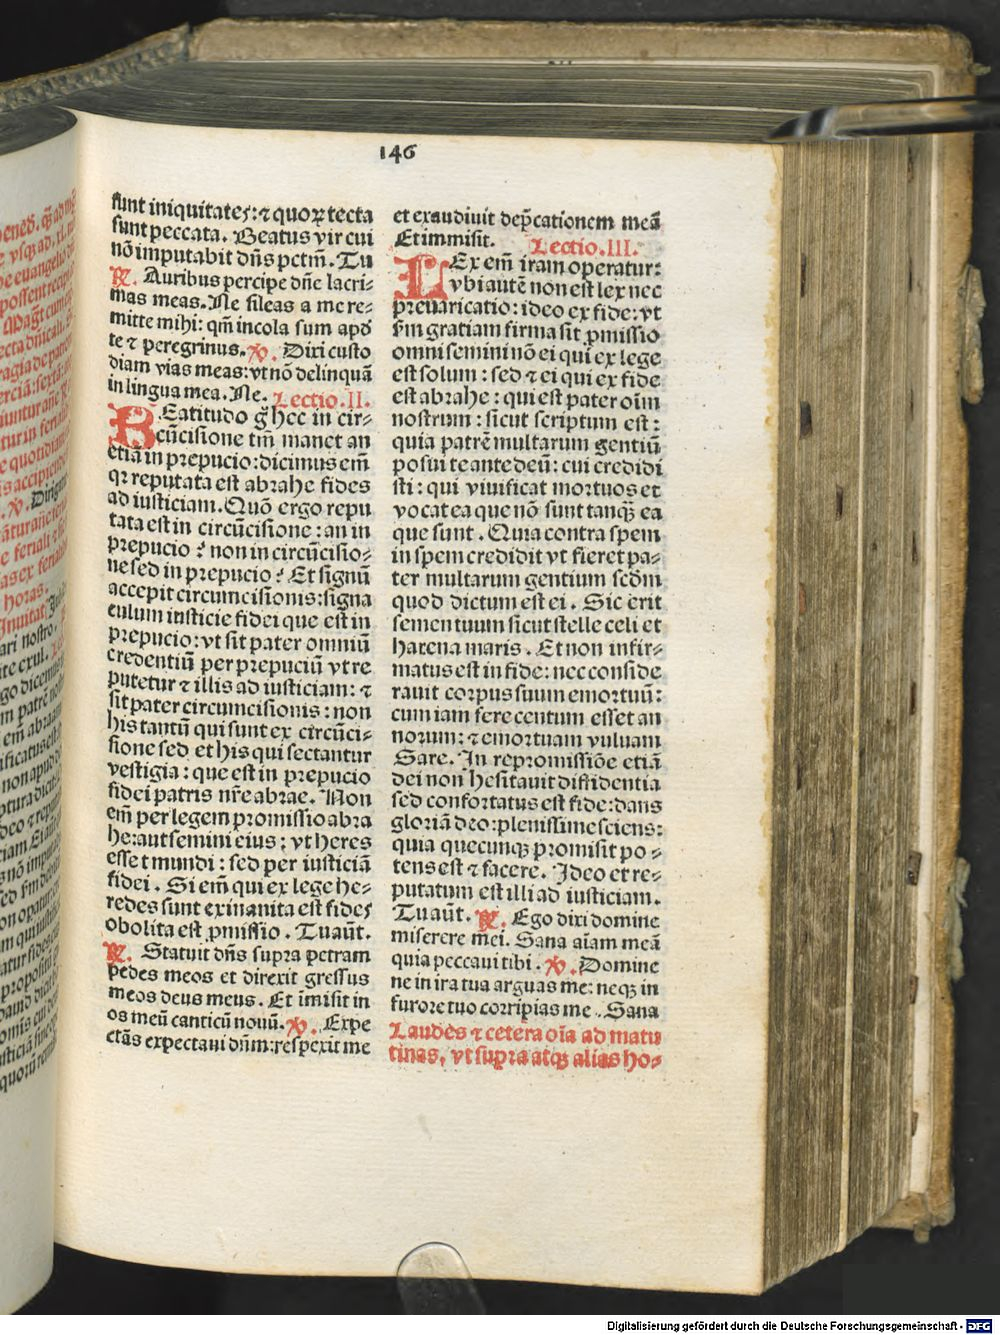 146
sunt iniquitates: ⁊ quoꝝ tecta
sunt peccata. Beatus vir cui
nõ imputabit dñs pctm̃. Tu
℟. Auribus percipe dñe lacri⸗
mas meas. Ne sileas a me re⸗
mitte mihi: qm̃ incola sum apð
te ⁊ peregrinus. ℣. Dixi custo
diam vias meas: vt nõ delinquã
in lingua mea. Ne. Lectio. II.
BEatitudo g̃ hec in cir⸗
cũcisione tm̃ manet an
etiã in prepucio: dicimus em̃
qꝛ reputata est abrahe fides
ad iusticiam. Quõ ergo repu
tata est in circũcisione: an in
prepucio? non in circũcisio⸗
ne sed in prepucio? Et signũ
accepit circumcisionis: signa
culum iusticie fidei que est in
prepucio: vt sit pater omniũ
credentiũ per prepuciũ vt re
putetur ⁊ illis ad iusticiam: ⁊
sit pater circumcisionis: non
his tantũ qui sunt ex circũci⸗
sione sed et his qui sectantur
vestigia: que est in prepucio
fidei patris nr̃e abrae. Non
em̃ per legem promissio abra
he: aut semini eius: vt heres
esset mundi: sed per iusticiã
fidei. Si em̃ qui ex lege he⸗
redes sunt exinanita est fides
obolita est ꝓmissio. Tu aũt.
℟. Statuit dñs supra petram
pedes meos et direxit gressus
meos deus meus. Et imisit in
os meũ canticũ nouũ. ℣. Expe
ctãs expectaui dñm: respexit me
et exaudiuit dep̃cationem meã
Et immisit. Lectio. III.
LEx em̃ iram operatur:
vbi autẽ non est lex nec
preuaricatio: ideo ex fide: vt
s̃m gratiam firma sit ꝓmissio
omni semini nõ ei qui ex lege
est solum: sed ⁊ ei qui ex fide
est abrahe: qui est pater oĩm
nostrum: sicut scriptum est:
quia patrẽ multarum gentiũ
posui te ante deũ: cui credidi
sti: qui viuificat mortuos et
vocat ea que nõ sunt tanqᷓ ea
que sunt. Quia contra spem
in spem credidit vt fieret pa⸗
ter multarum gentium scðm
quod dictum est ei. Sic erit
semen tuum sicut stelle celi et
harena maris. Et non infir⸗
matus est in fide: nec conside
rauit corpus suum emortuũ:
cum iam fere centum esset an
norum: ⁊ emortuam vuluam
Sare. In repromissiõe etiã
dei non hesitauit diffidentia
sed confortatus est fide: dans
gloriã deo: plenissime sciens:
quia quecunqꝫ promisit po⸗
tens est ⁊ facere. Ideo et re⸗
putatum est illi ad iusticiam.
Tu aũt. ℟. Ego dixi domine
miserere mei. Sana aĩam meã
quia peccaui tibi. ℣. Domine
ne in ira tua arguas me: neqꝫ in
furore tuo corripias me. Sana
Laudes ⁊ cetera oĩa ad matu
tinas, vt supra atqꝫ alias ho⸗
Digitalisierung gefördert durch die Deutsche Forschungsgemeinschaft - DFG